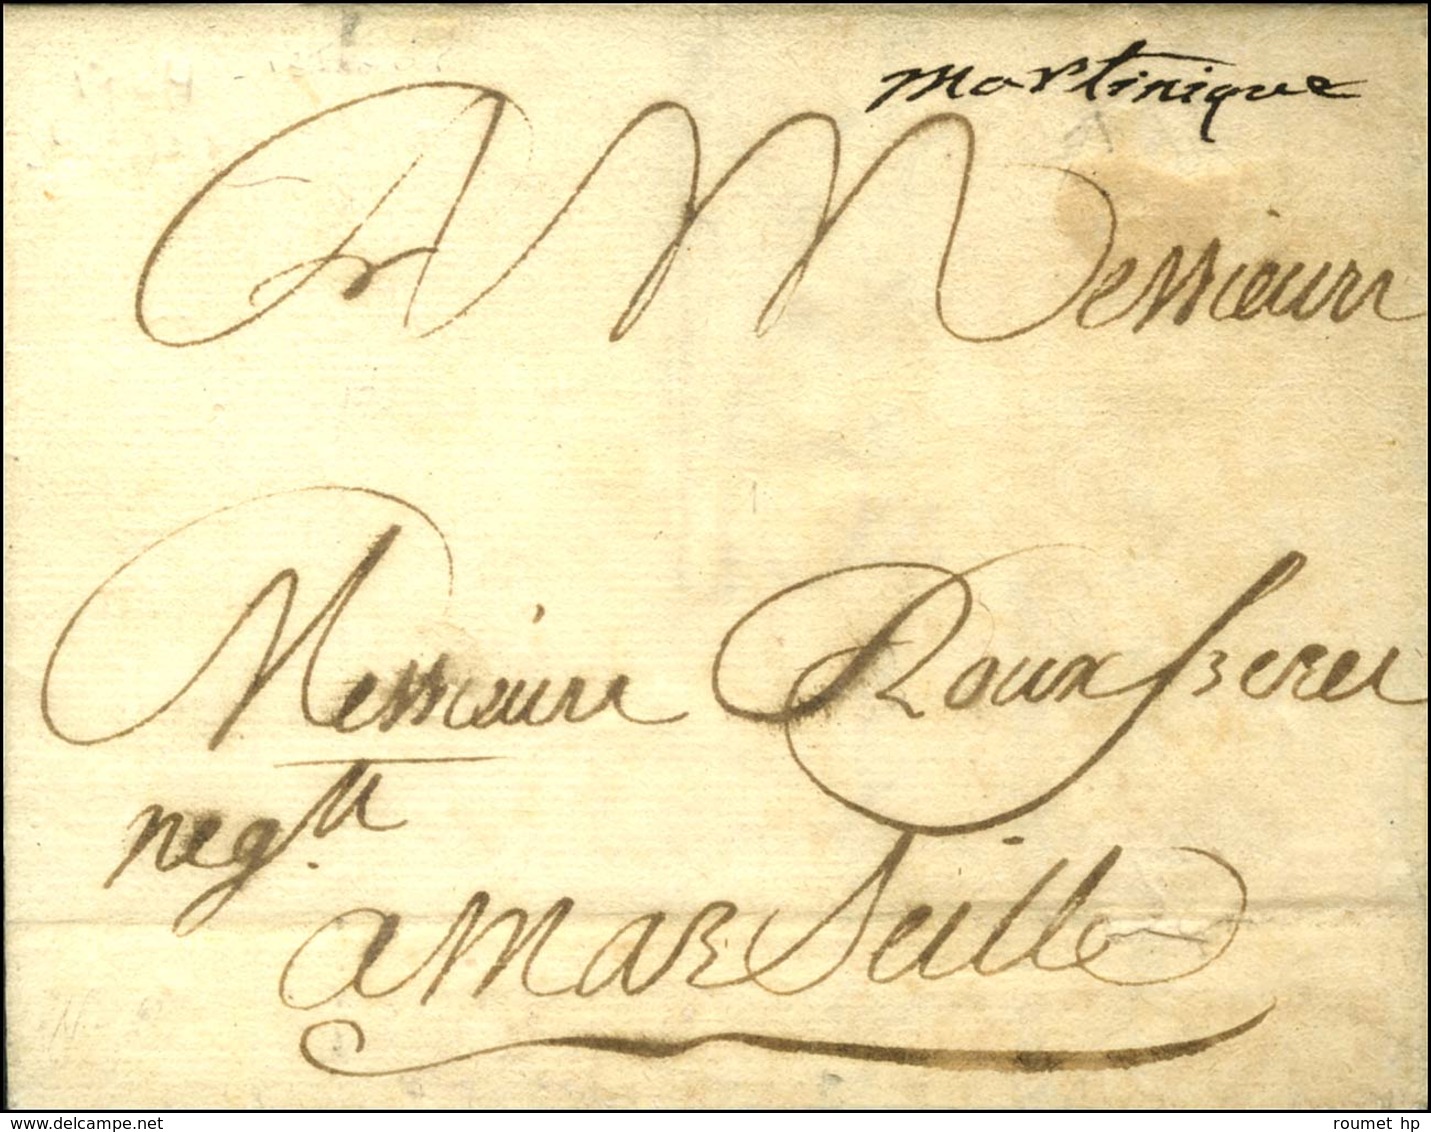 Martinique
A Messieurs
Messieurs Roux freres
neg.ts
a Marseille
www.delcampe.net
roumet hp